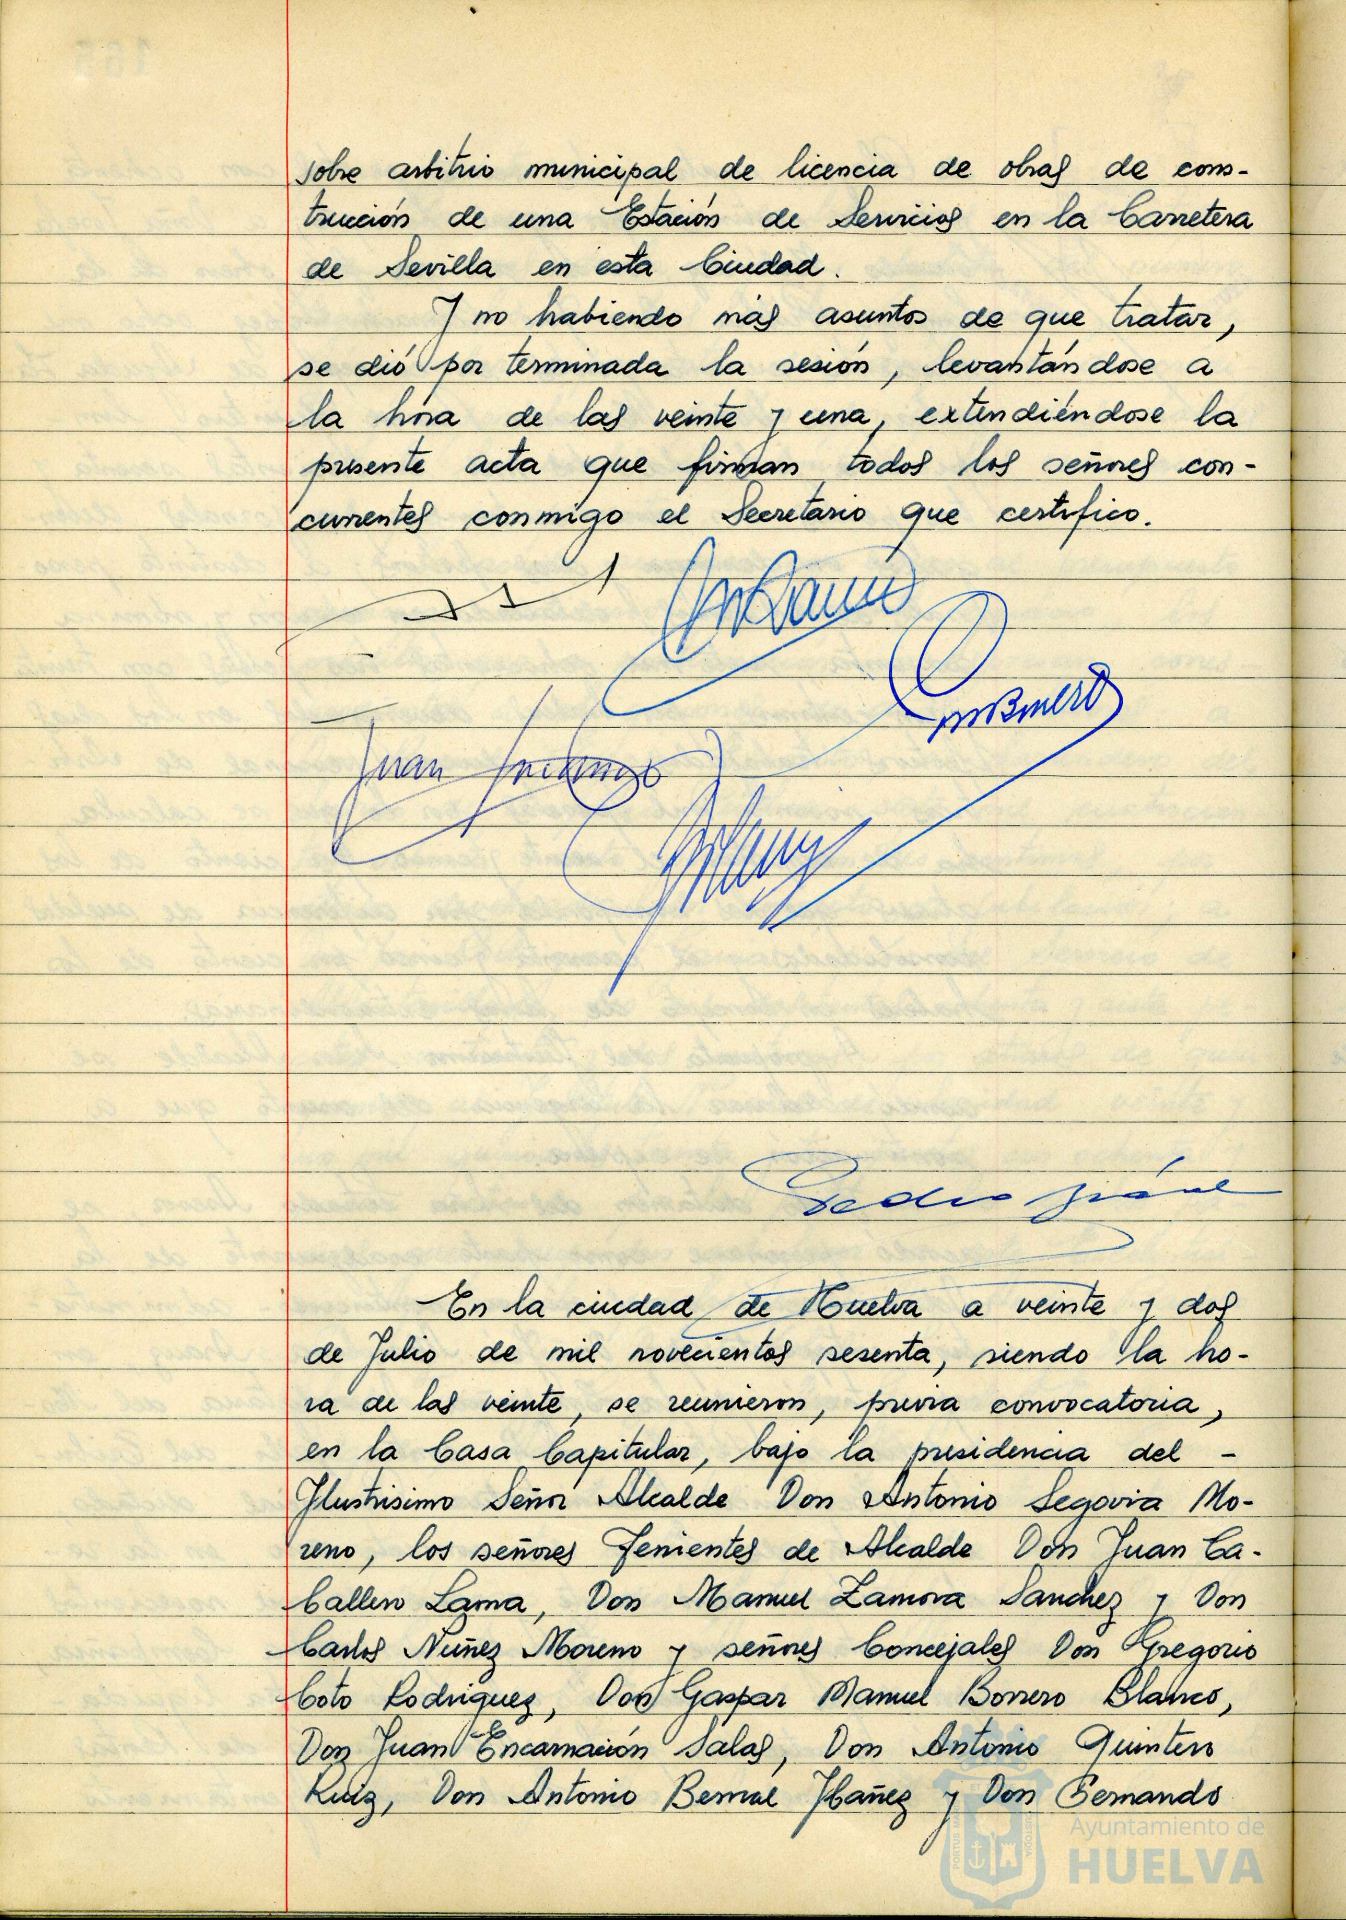 sobre arbitrio municipal de licencia de obras de cons-
trucción de una Estación de Servicios en la Carretera
de Sevilla en esta Ciudad.
Y no habiendo más asuntos de que tratar,
se dió por terminada la sesión, levantándose a
la hora de las veinte y una, extendiéndose la
presente acta que firman todos los señores con-
currentes conmigo el Secretario que certifico.
Juan
Pedro
En la ciudad de Huelva a veinte y dos
de Julio de mil novecientos sesenta, siendo la ho-
ra de las veinte, se reunieron, previa convocatoria,
en la Casa Capitular, bajo la presidencia del -
Ilustrisimo Señor Alcalde Don Antonio Segovia Mo-
reno, los señores Tenientes de Alcalde Don Juan Ca-
ballero Lama, Don Manuel Zamora Sanchez y Don
Carlos Nuñez Moreno y señores Concejales Don Gregorio
Coto Rodriguez, Don Gaspar Manuel Borrero Blanco,
Don Juan Encarnación Salas, Don Antonio Quintero
Ruiz, Don Antonio Bernal Ibañez y Don Fernando
Ayuntamiento de
HUELVA